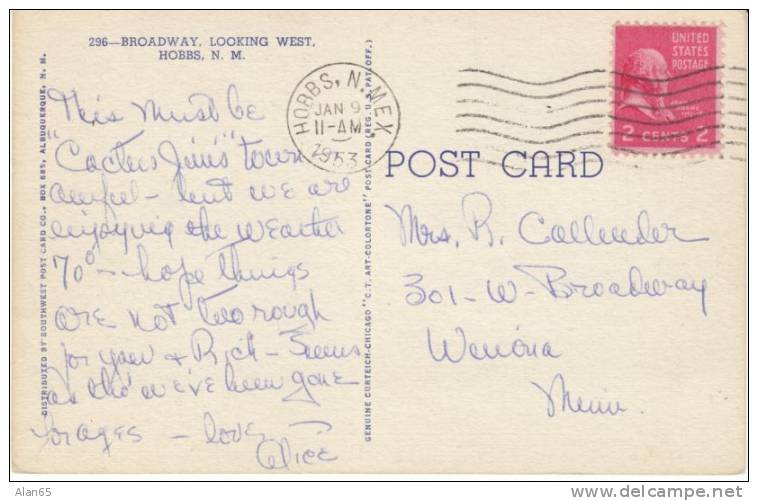 296—BROADWAY, LOOKING WEST,
HOBBS, N. M.
This Must be
"Cactus Jim's" town
awful — but we are
enjoying the weather
70° — hope things
are not too rough
for you & Rich — Seems
as tho' we've been gone
for ages — love,
Alice
DISTRIBUTED BY SOUTHWEST POST CARD CO., BOX 685, ALBUQUERQUE, N. M.
GENUINE CURTEICH-CHICAGO "C.T. ART-COLORTONE" POST CARD (REG. U.S. PAT. OFF.)
HOBBS, N. MEX.
JAN 9
11-AM
1953
UNITED
STATES
POSTAGE
2 CENTS 2
POST CARD
Mrs. R. Callender
301-W-Broadway
Winona
Minn.
Alan65
http://www.delcampe.net